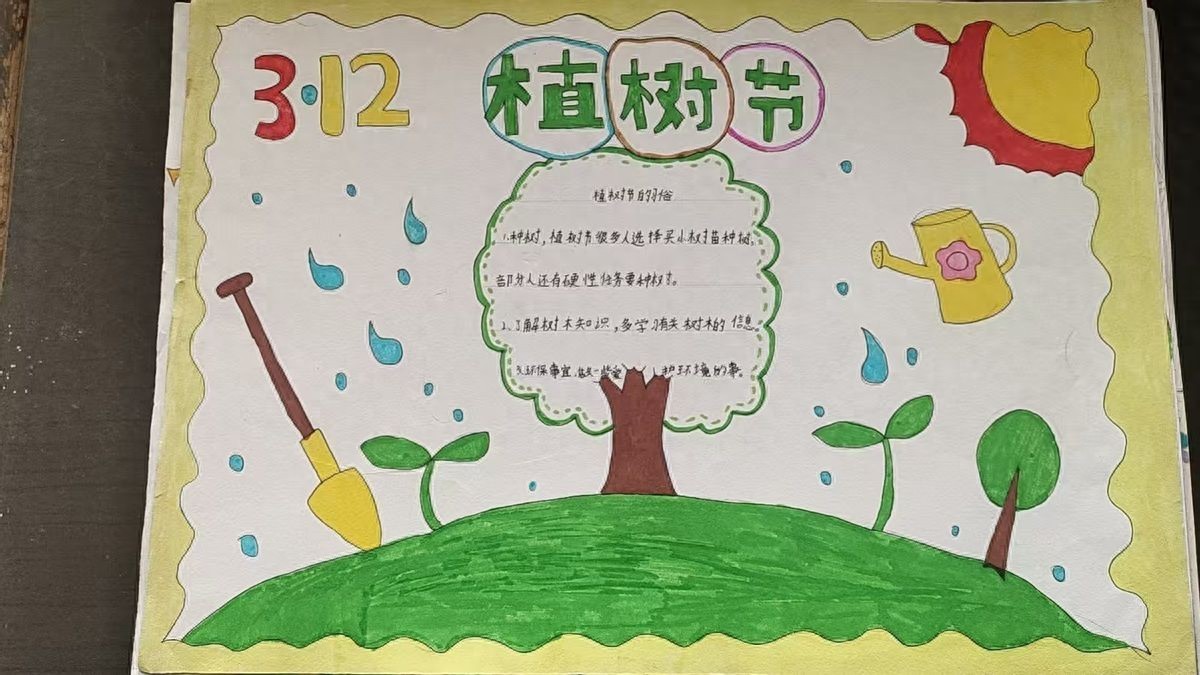 3·12
植树节
植树节的习俗
1.种树,植树节很多人选择买小树苗种树。
部分人还有硬性任务要种树。
2、了解树木知识,多学习有关树木的信息。
3.环保事宜,做一些爱 护环境的事。